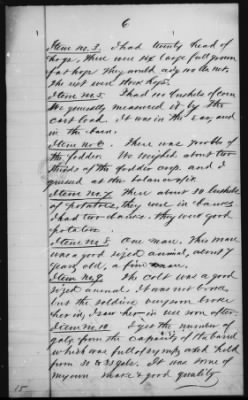 6
Item No. 3. I had twenty head of
hogs, there were six large full grown
fat hogs they would weigh
the rest were stock hogs.
Item no. 5. I had 100 bushels of corn
We generally measured it by the
cart load. It was in the ear, and
in the barn.
Item no 6. There was
the fodder. We bought about two
thirds of the fodder crop. and I
guessed at the balance of it.
Item No. 7 There about 30 bushels
of potatoes, they were in
I had two classes. they were good
potatoes.
Item No. 8. One mare. This mare
was a good sized animal, about 7
years old, a fine mare.
Item No. 9. The colt was a good
sized animal. It was not broke,
but the soldiers broke
her in, I saw her in use soon after.
Item no. 10 I got the number of
gals from the capacity of the barrel
which was full of syrup and held
from 30 to 35 gals. It was some of
my own make & good quality
15